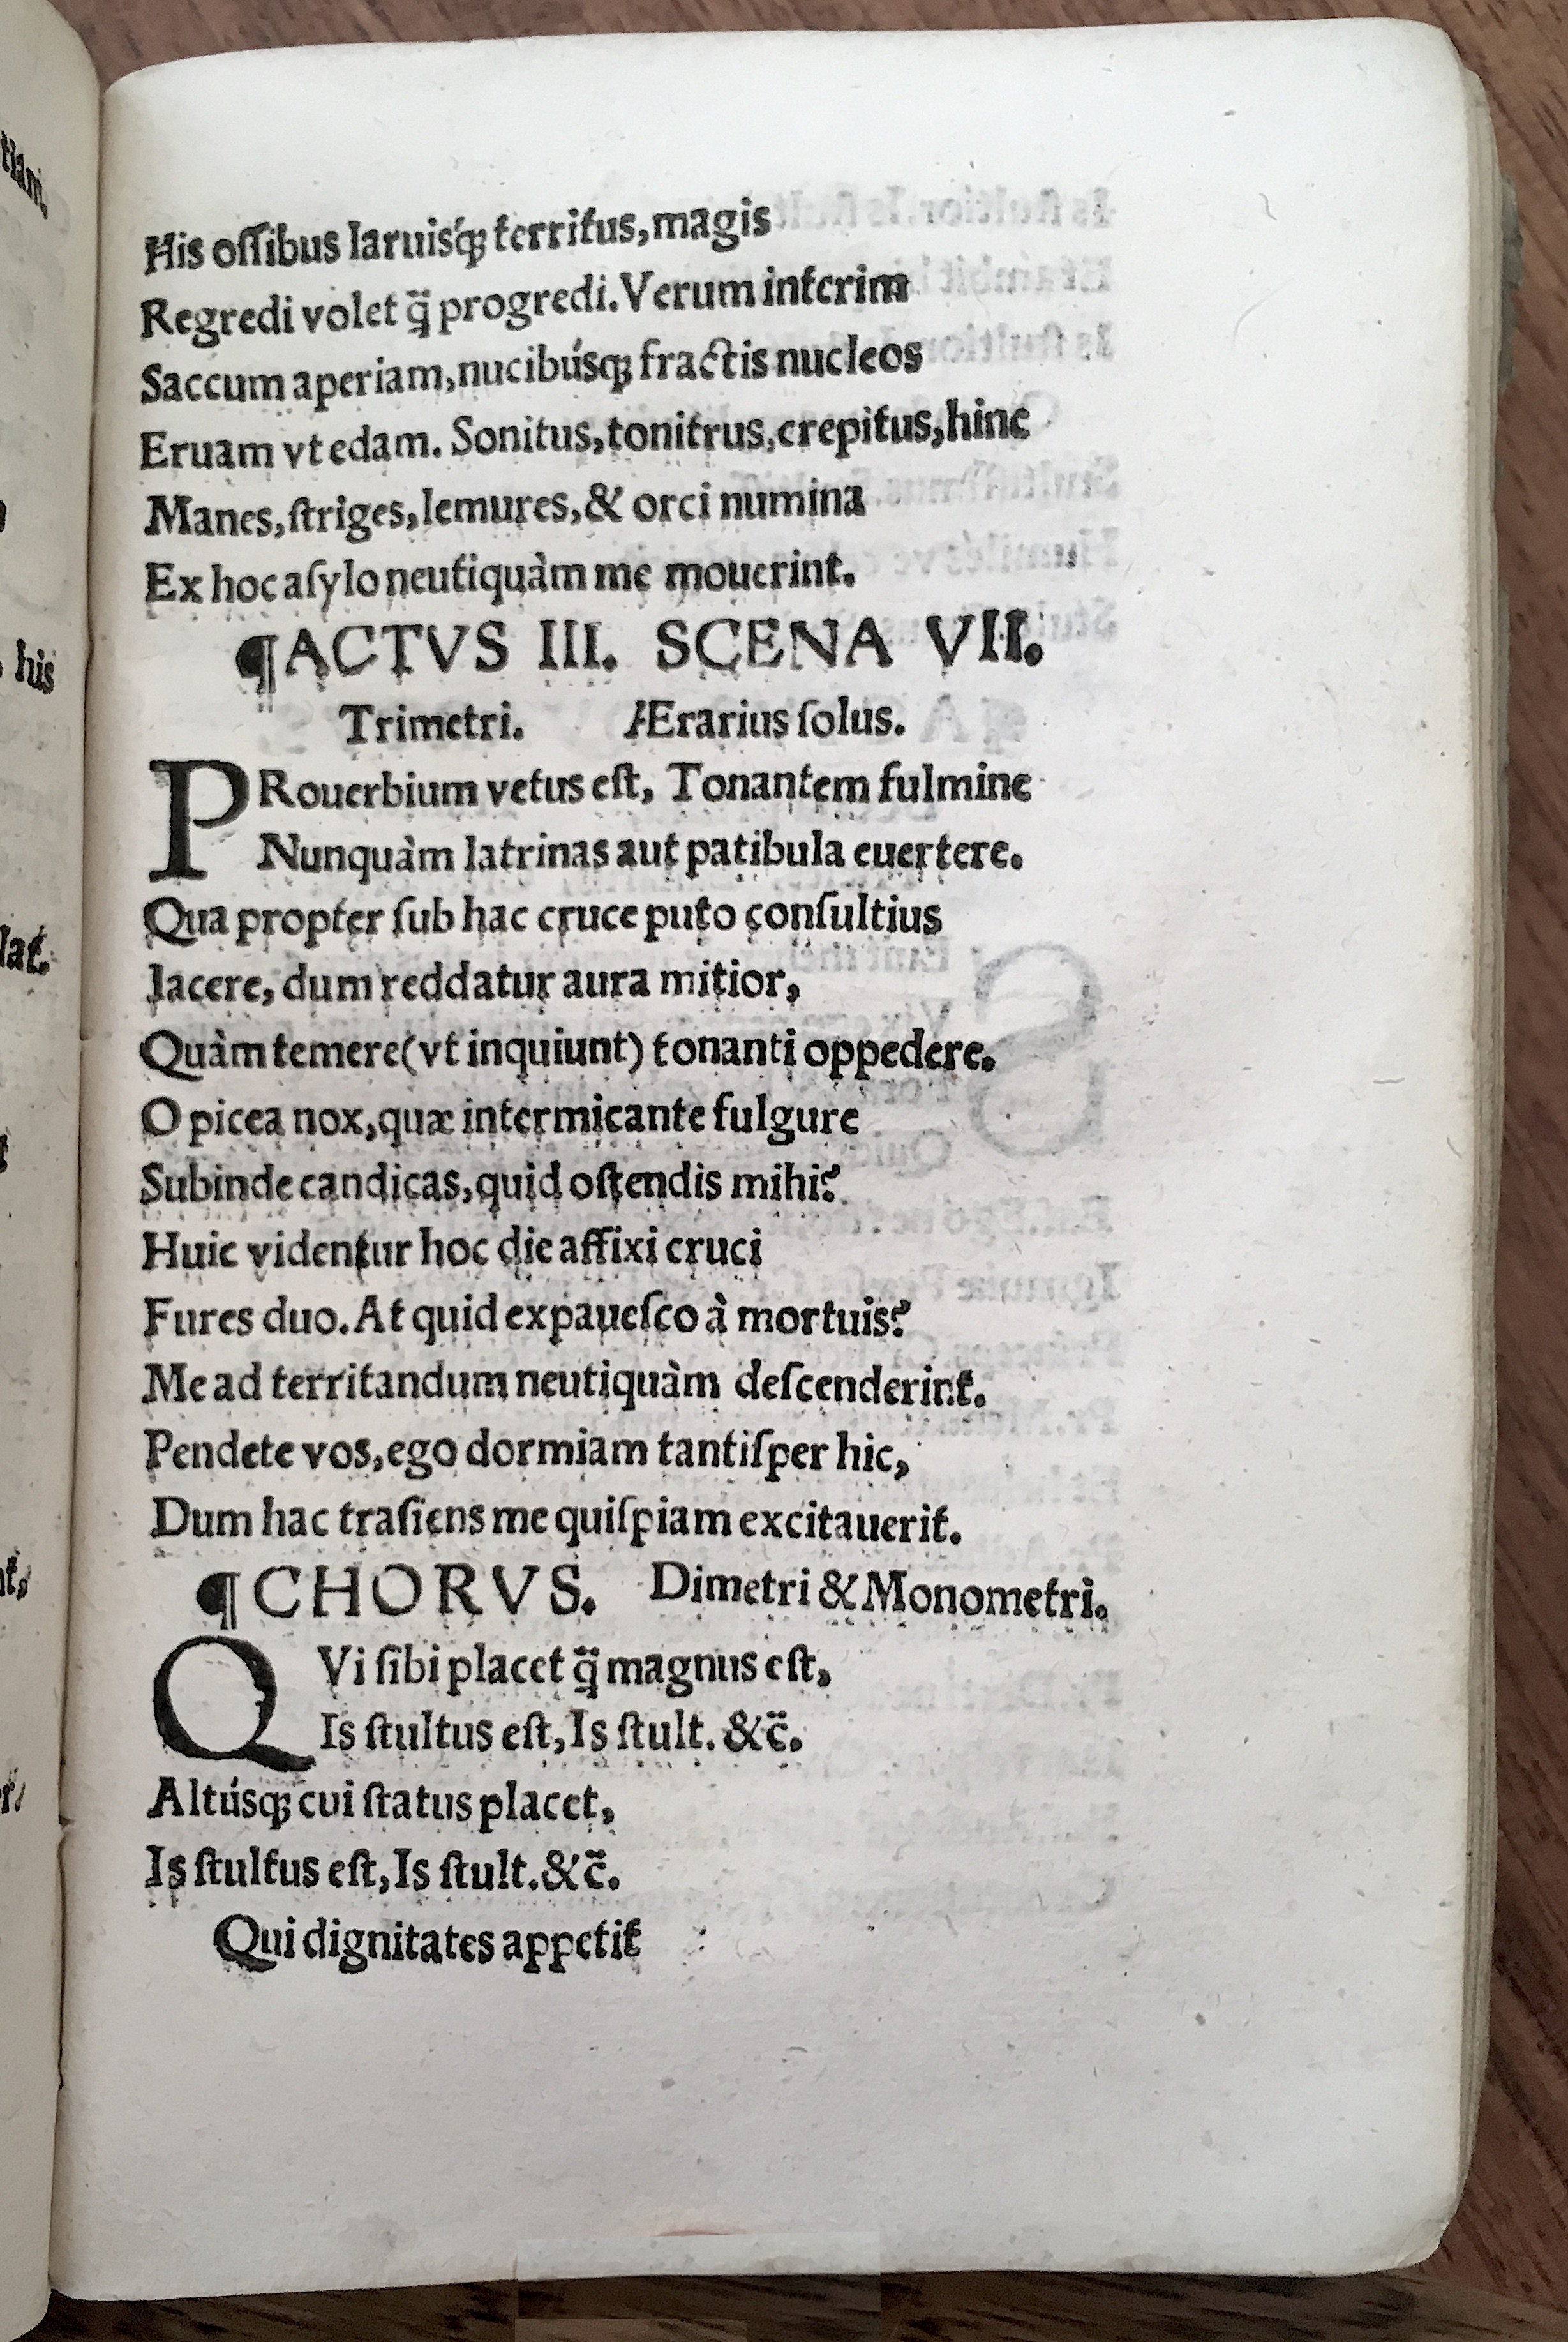 His oſſibus laruiśq; territus, magis
Regredi volet q̃ progredi. Verum interim
Saccum aperiam, nucibúsq; fractis nucleos
Eruam vt edam. Sonitus, tonitrus, crepitus, hinc
Manes, ſtriges, lemures, & orci numina
Ex hoc aſylo neutiquàm me mouerint.
¶ACTVS III. SCENA VII.
Trimetri. Ærarius ſolus.
PRouerbium vetus eſt, Tonantem fulmine
Nunquàm latrinas aut patibula euertere.
Qua propter ſub hac cruce puto conſultius
Jacere, dum reddatur aura mitior,
Quàm temere (vt inquiunt) tonanti oppedere.
O picea nox, quæ intermicante fulgure
Subinde candicas, quid oſtendis mihi?
Huic videntur hoc die affixi cruci
Fures duo. At quid expaueſco à mortuis?
Me ad territandum neutiquàm deſcenderint.
Pendete vos, ego dormiam tantiſper hic,
Dum hac traſiens me quiſpiam excitauerit.
¶CHORVS. Dimetri & Monometri.
QVi ſibi placet q̃ magnus eſt,
Is ſtultus eſt, Is ſtult. &c̃.
Altúsq; cui ſtatus placet,
Is ſtultus eſt, Is ſtult. &c̃.
Qui dignitates appetit
his